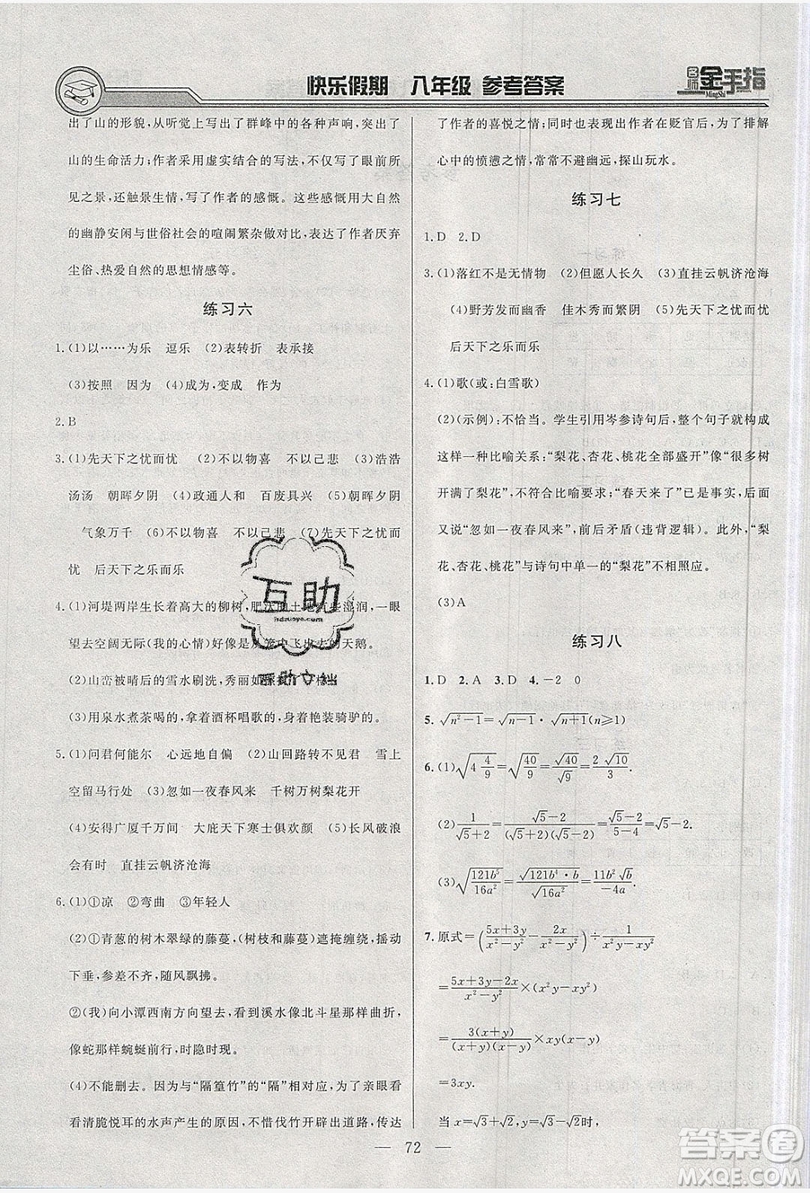 快乐假期 八年级 参考答案
名师金手指
MingShi
出了山的形貌，从听觉上写出了群峰中的各种声响，体现
了山的生命活力；作者采用虚实结合的写法，写了眼前所
见之景，还触景生情，写了作者的感慨。这些感慨用大自然
的幽静安闲与世俗社会的喧闹繁杂做对比，表达了作者厌弃
尘俗、热爱自然的思想情感等。
练习六
1.(1)以……为乐 逗乐 (2)表转折 表承接
(3)按照 因为 (4)成为,变成 作为
2.B
3.(1)先天下之忧而忧 (2)不以物喜 不以己悲 (3)浩浩
汤汤 朝晖夕阴 (4)政通人和 百废具兴 (5)朝晖夕阴
气象万千 (6)不以物喜 不以己悲 (7)先天下之忧而
忧 后天下之乐而乐
4.(1)河堤两岸生长着高大的柳树，肥沃的土地有些湿润，一眼
望去空阔无际(我的心情)好像是从笼中飞出去的天鹅。
(2)山峦被晴后的雪水刷洗，秀丽如
(3)用泉水煮茶喝的，拿着酒杯唱歌的，身着艳装骑驴的。
5.(1)问君何能尔 心远地自偏 (2)山回路转不见君 雪上
空留马行处 (3)忽如一夜春风来 千树万树梨花开
(4)安得广厦千万间 大庇天下寒士俱欢颜 (5)长风破浪
会有时 直挂云帆济沧海
6.(1)①凉 ②弯曲 ③年轻人
(2)①青葱的树木翠绿的藤蔓，(树枝和藤蔓)遮掩缠绕，摇动
下垂，参差不齐，随风飘拂。
②(我)向小潭西南方向望去，看到溪水像北斗星那样曲折，
像蛇那样蜿蜒前行，时隐时现。
(4)不能删去。因为与“隔篁竹”的“隔”相对应，不仅表现看
看清脆悦耳的水声产生的原因，不惜伐竹开辟出道路，传达
了作者的喜悦之情；同时也表现出作者在贬官后，为了排解
心中的愤懑之情，常常不避幽远，探山玩水。
练习七
1.D 2.D
3.(1)落红不是无情物 (2)但愿人长久 (3)直挂云帆济沧海
(4)野芳发而幽香 佳木秀而繁阴 (5)先天下之忧而忧
后天下之乐而乐
4.(1)歌(或：白雪歌)
(2)(示例)：不恰当。学生引用岑参诗句后，整个句子就构成
一种比喻关系：“梨花、杏花、桃花全部盛开”就“像很多树
开满了梨花”，不符合比喻要求；“春天来了”已是春天，后面
又说“忽如一夜春风来”，前后矛盾(违背逻辑)。此外，“梨
花、杏花、桃花”与诗句中单一的“梨花”不相照应。
(3)A
练习八
1.D 2.A 3.D 4.-2 0
5.√(n²-1)=√(n-1)·√(n+1)(n≥1)
6.(1)√(4 4/9)=√(40/9)=√40/√9=2√10/3.
(2)1/(√5+2)=(√5-2)/((√5+2)(√5-2))=(√5-2)/(5-4)=√5-2.
(3)√(121b⁵/16a²)=√(121b⁴·b)/√(16a²)=11b²√b/(-4a).
7.原式=((5x+3y)/(x²-y²)-2x/(x²-y²))÷1/(x²y-xy²)
=(5x+3y-2x)/(x²-y²)×(x²y-xy²)
=3(x+y)/((x+y)(x-y))×xy(x-y)
=3xy.
当 x=√3+√2,y=√3-√2时，
72
互助
hdzuoye.com
互助文档
答案圈
MXQE.COM